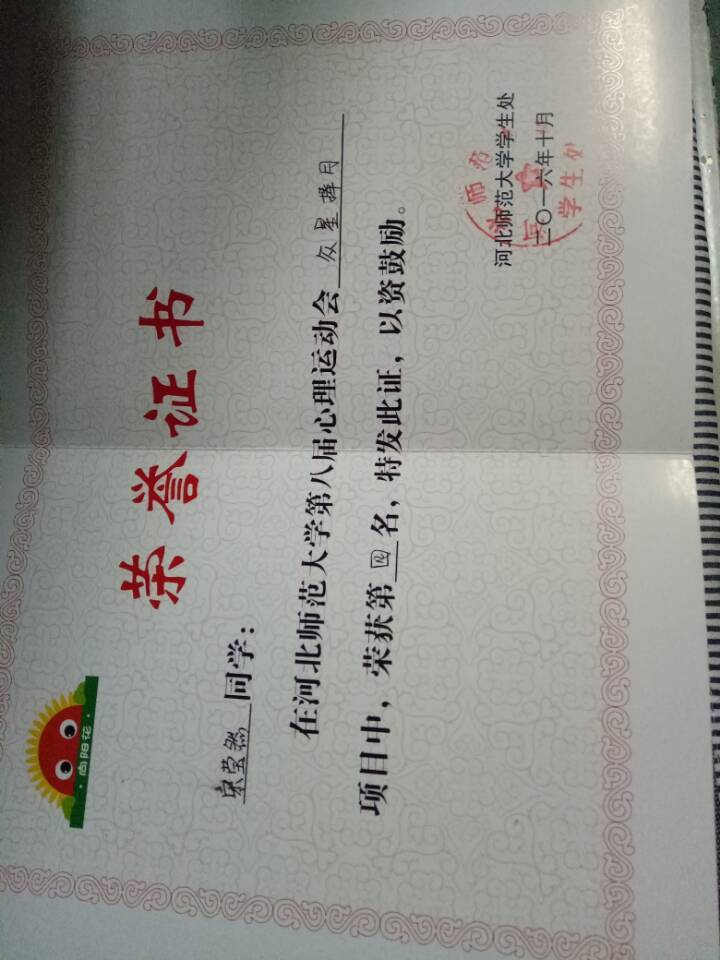 ·向阳花·
荣誉证书
宋莹然 同学：
在河北师范大学第八届心理运动会 众星捧月
项目中，荣获第 四 名，特发此证，以资鼓励。
河北师范大学学生处
二〇一六年十月
河北师范
学生处